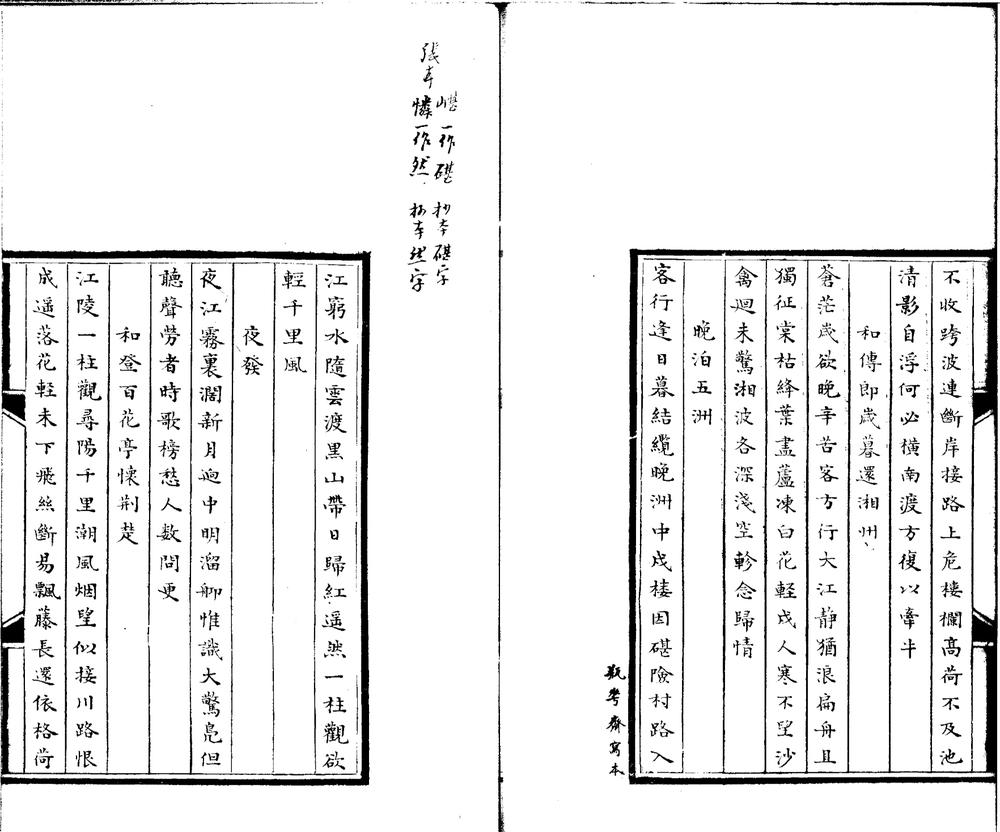 不收跨波連斷岸接路上危樓欄高荷不及池
清影自浮何必橫南渡方復似牽牛
和傅郎歲暮還湘州
蒼茫歲欲晚辛苦客方行大江静猶浪扁舟且
獨征棠枯絳葉盡蘆凍白花輕戍人寒不望沙
禽迴未驚湘波各深淺空軫念歸情
晚泊五洲
客行逢日暮結纜晚洲中戍樓因碪險村路入
江窮水隨雲渡黑山帶日歸紅遥然一柱觀欲
輕千里風
夜發
夜江霧裏濶新月迥中明溜船惟識大驚鳧但
聽聲勞者時歌榜愁人数問更
和登百花亭懷荆楚
江陵一柱觀尋陽千里潮風烟望似接川路恨
成遥落花輕未下飛絲斷易飄藤長還依格荷
嵁一作碪 抄本碪字
張本憐一作然 抄本然字
齋寫本